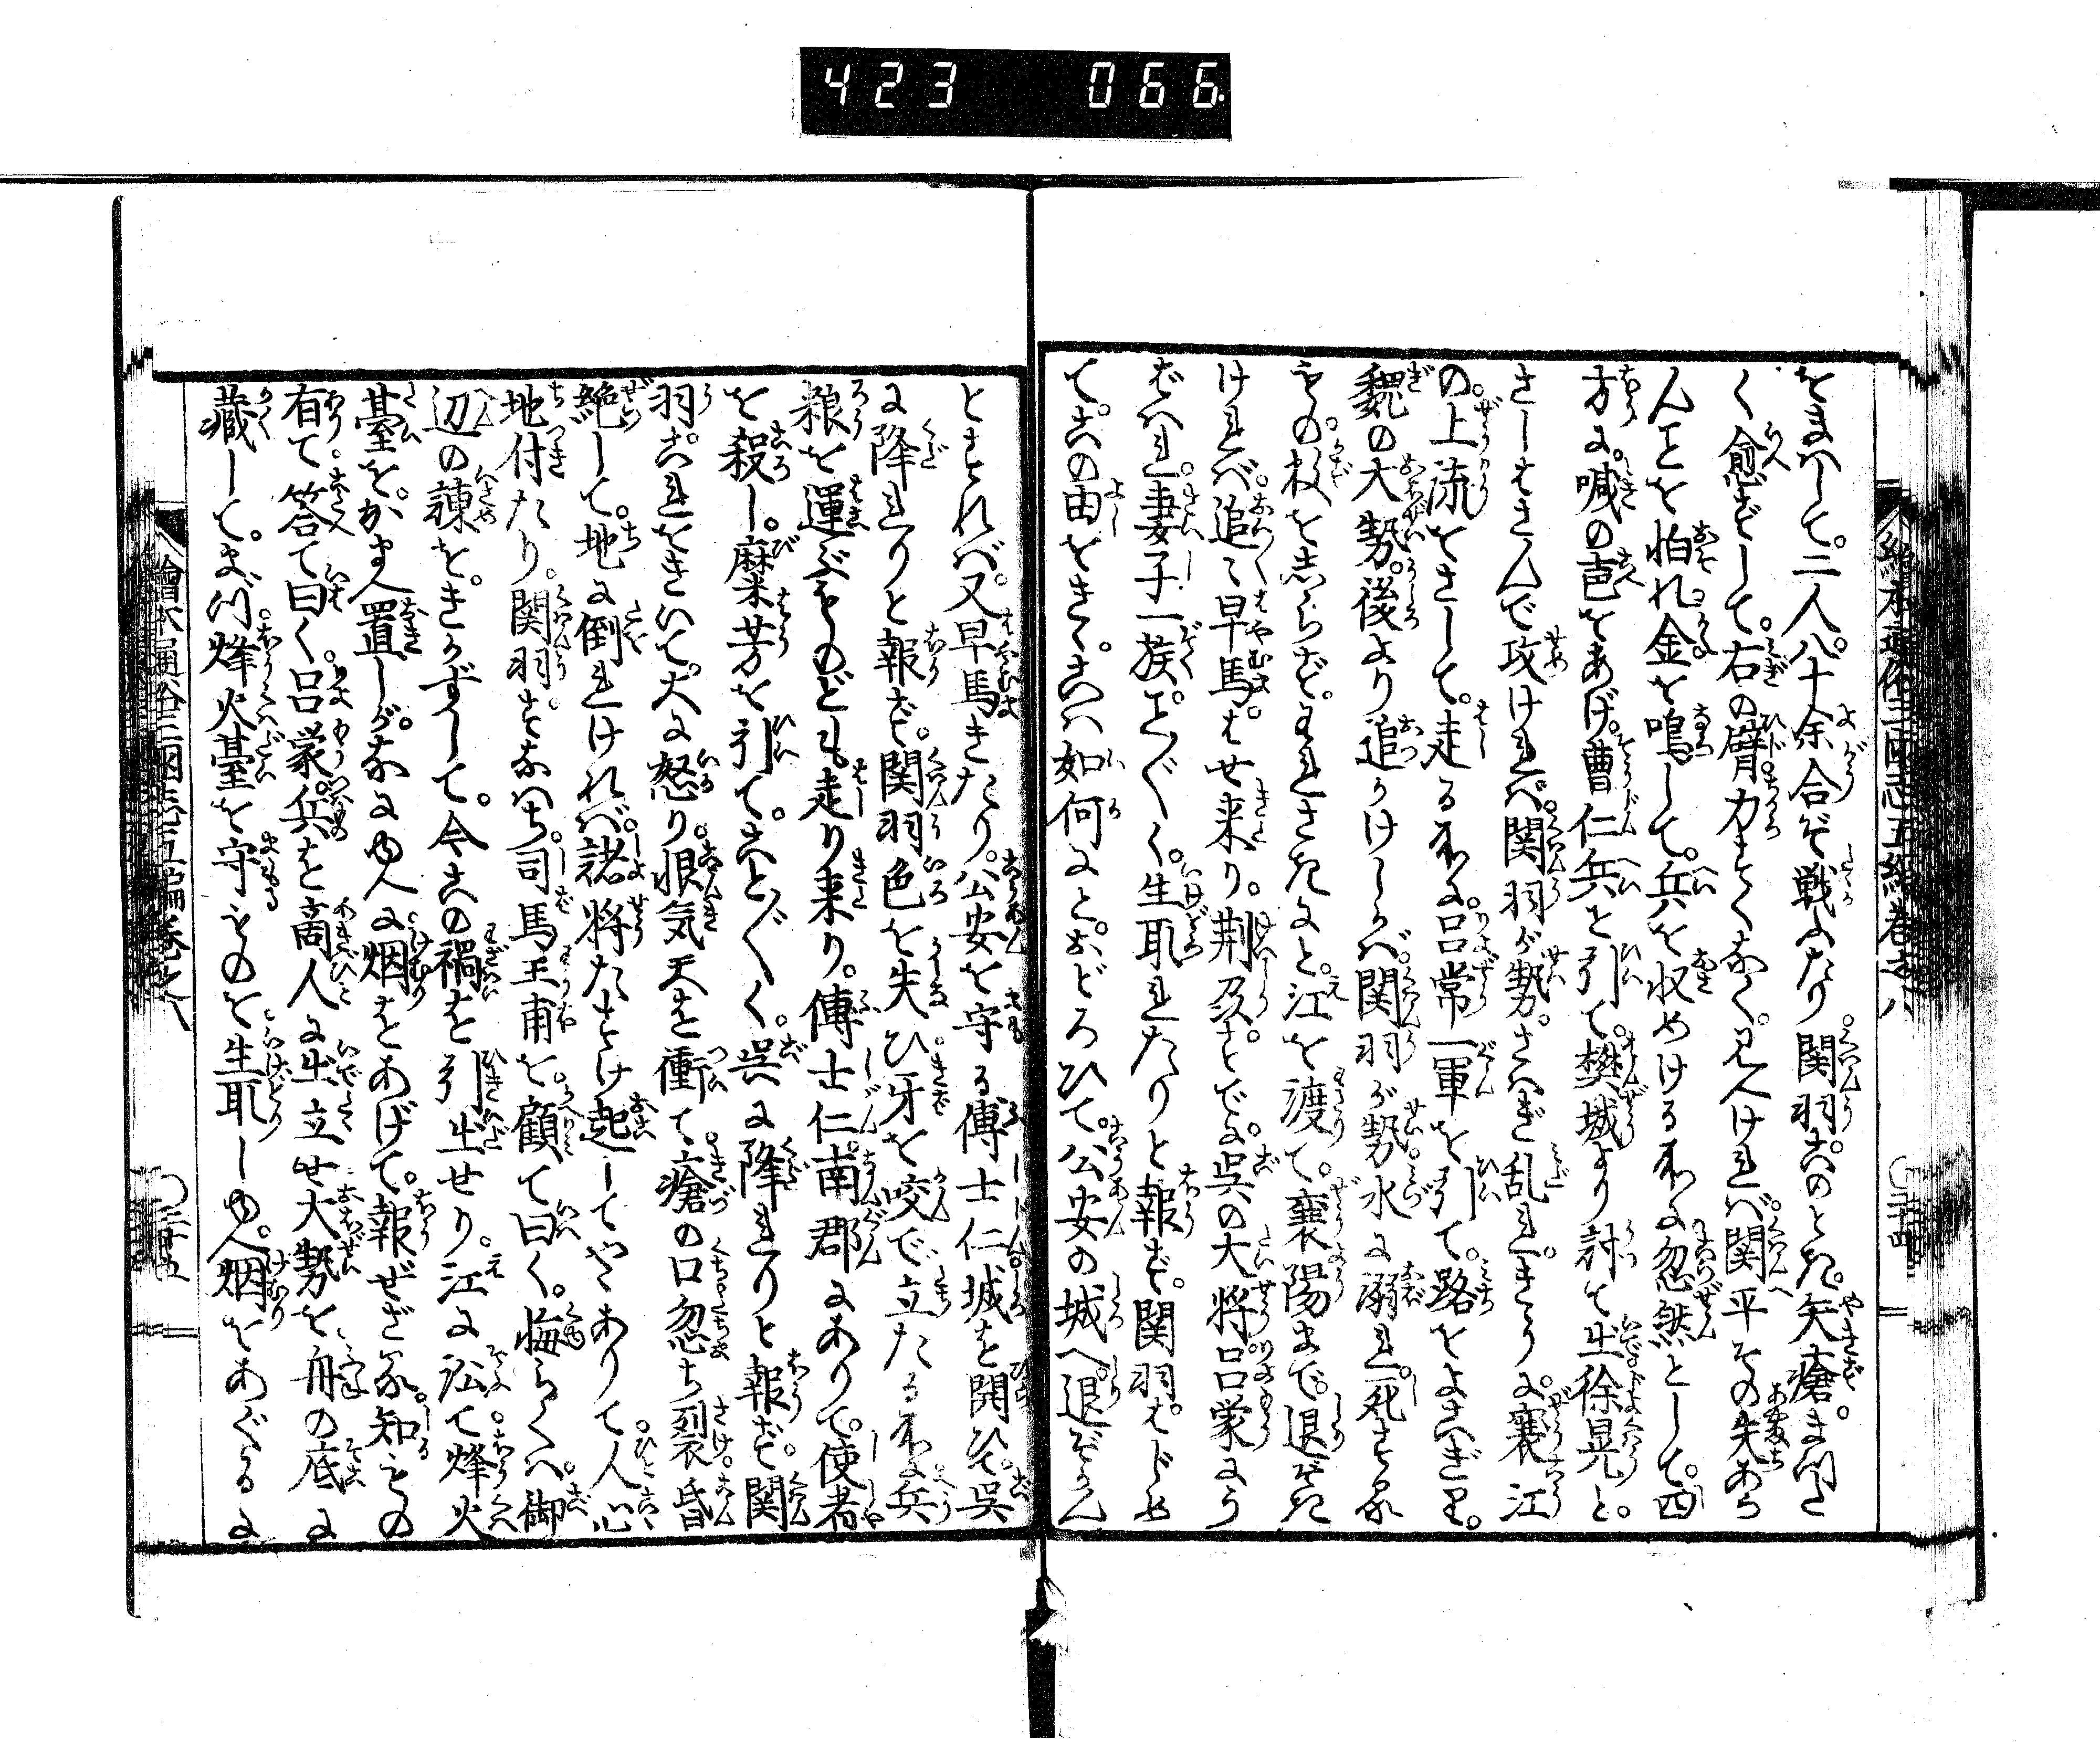 423 066
をまハして。二人。八十余合ぞ戦ふたり関羽。このとき。矢瘡。まつた
く愈ずして。右の臂力すくなく見へけれバ関平その失あら
んことを怕れ。金を鳴して。兵を収めける所に忽然として。四
方に。喊の声をあげ。曹仁兵を引て。樊城より討て出徐晃と。
さしはさんで攻けれバ。関羽が勢。さハぎ乱れ。きそふて。襄江
の。上流をさして。走る所に。呂常一軍を引て。路をよこぎり。
魏の大勢。後より追かけしかバ。関羽が勢水に溺れ。死する
もの。数をしらず。これさきにと。江を渡て。襄陽まで。退ぞき
けれバ。追々早馬。はせ来り。荊及。すでに。呉の大将呂蒙にう
ばハれ。妻子一族ことごとく。生取れたりと報ず。関羽。はじめ
て。この由をきく。こハ如何にと。おどろひて。公安の城へ。退ぞかん
とすれバ。又早馬きたり。公安を守る傅士仁城を開ひて。呉
に降れりと報ず。関羽色を失ひ牙を咬で立たる所に兵
粮を運ぶものども走り来り。傅士仁。南郡にありて。使者
を殺し。糜芳を引て。ことごとく。呉に降れりと報ず。関
羽。これをきいて。大に怒り。恨気天を衝て。瘡の口忽ち裂。昏
絶して。地に倒れけれバ。諸将たすけ起してやゝありて。人心
地付たり。関羽。すなハち。司馬王甫を。顧て曰く。悔らくハ。御
辺の諫を。きかずして。今この禍を引出せり。江に沿て烽火
臺を。かまへ置しが。なにゆへに烟をあげて。報ぜざる。知もの
有て。答て曰く。呂蒙。兵を商人に出立せ大勢を舟の底に
藏して。まづ烽火臺を守ものを生取しゆへ。烟をあぐるに
繪本通俗三国志五編巻之八